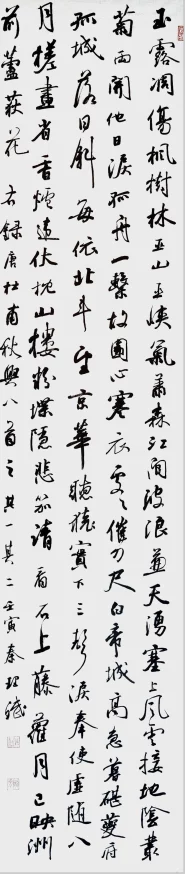 玉露凋傷楓樹林巫山巫峽氣蕭森江間波浪兼天湧塞上風雲接地陰叢
菊兩開他日淚孤舟一繫故園心寒衣處々催刀尺白帝城高急暮碪夔府
孤城落日斜每依北斗望京華聽猿實下三聲淚奉使虛隨八
月槎畫省香爐違伏枕山樓粉堞隱悲笳請看石上藤蘿月已映洲
前蘆荻花 右錄唐杜甫秋興八首之其一其二壬寅秦